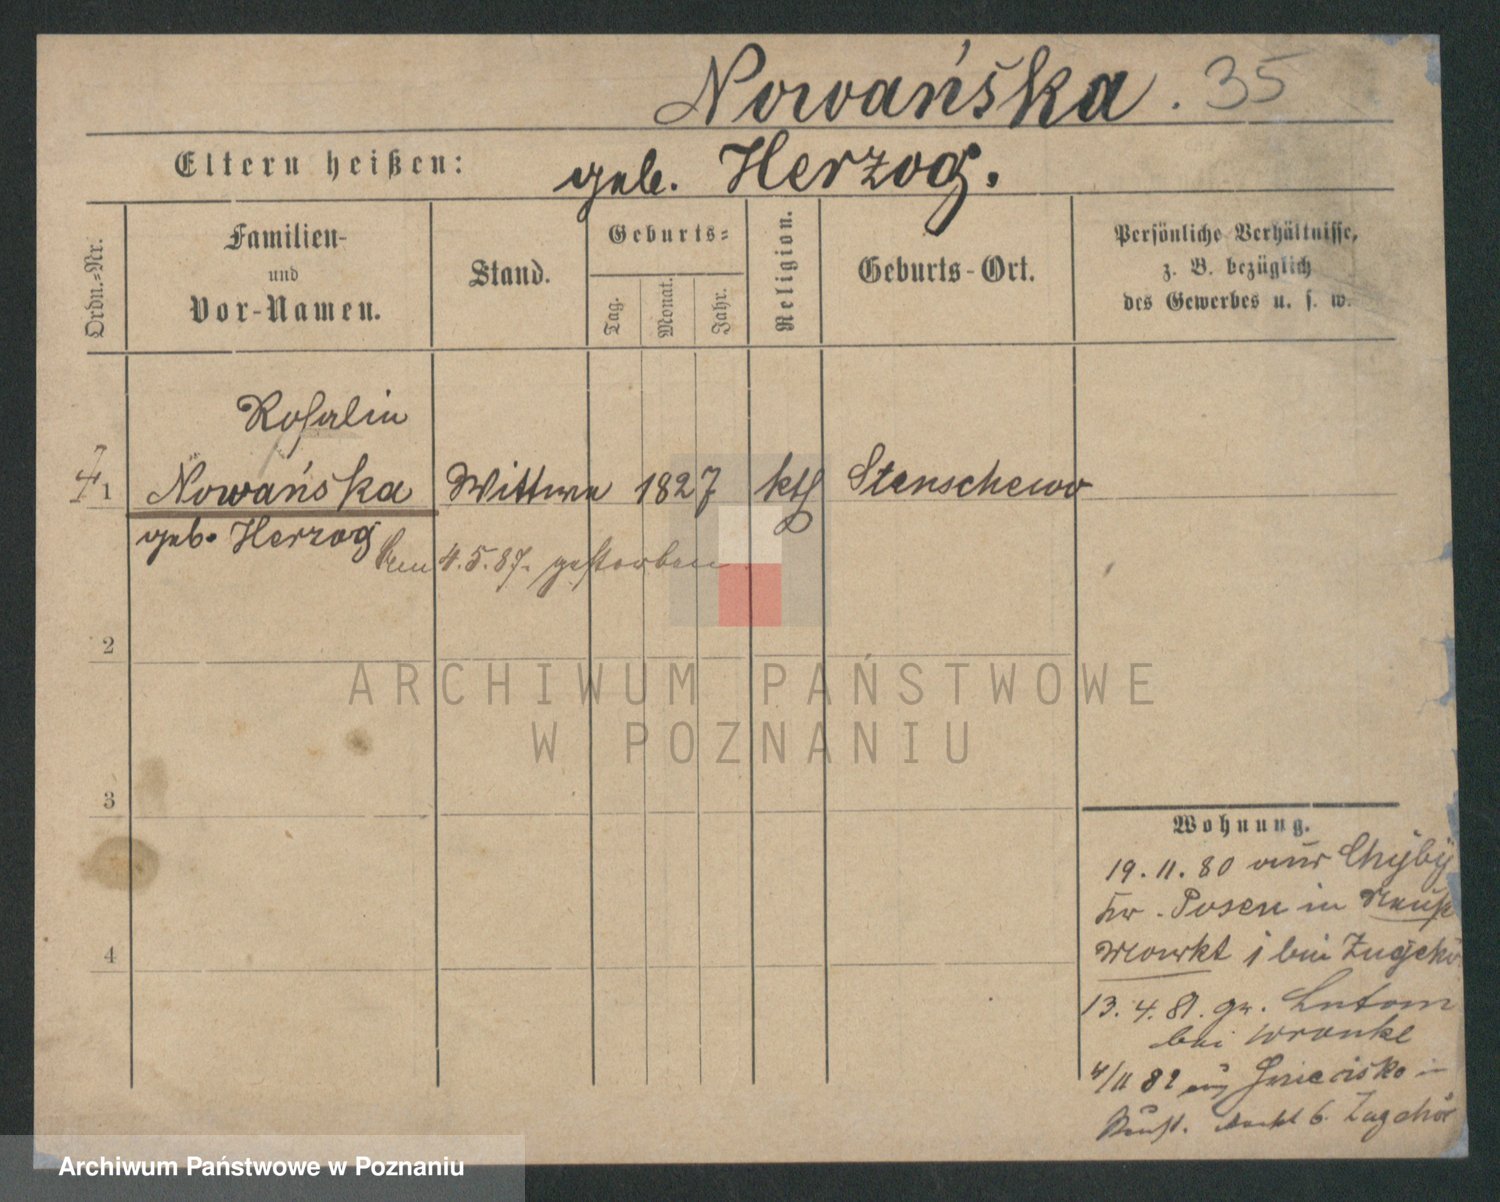 Nowańska. 35
Eltern heißen: geb. Herzog.
Ordn.-Nr.
Familien-
und
Vor-Namen.
Stand.
Geburts-
Tag.
Monat.
Jahr.
Religion.
Geburts-Ort.
Persönliche Verhältnisse,
z. B. bezüglich
des Gewerbes u. s. w.
Rosalie
1 Nowańska Wittwe 1827 kth Stenschewo
geb. Herzog
am 4.5.87. gestorben
2
3
4
Wohnung.
19.11.80 aus Chyby
Kr. Posen in
Markt 1 bei
13.4.81. gr. Lutom
bei Wronke
4/11 82 aus in
6.
ARCHIWUM PAŃSTWOWE
W POZNANIU
Archiwum Państwowe w Poznaniu